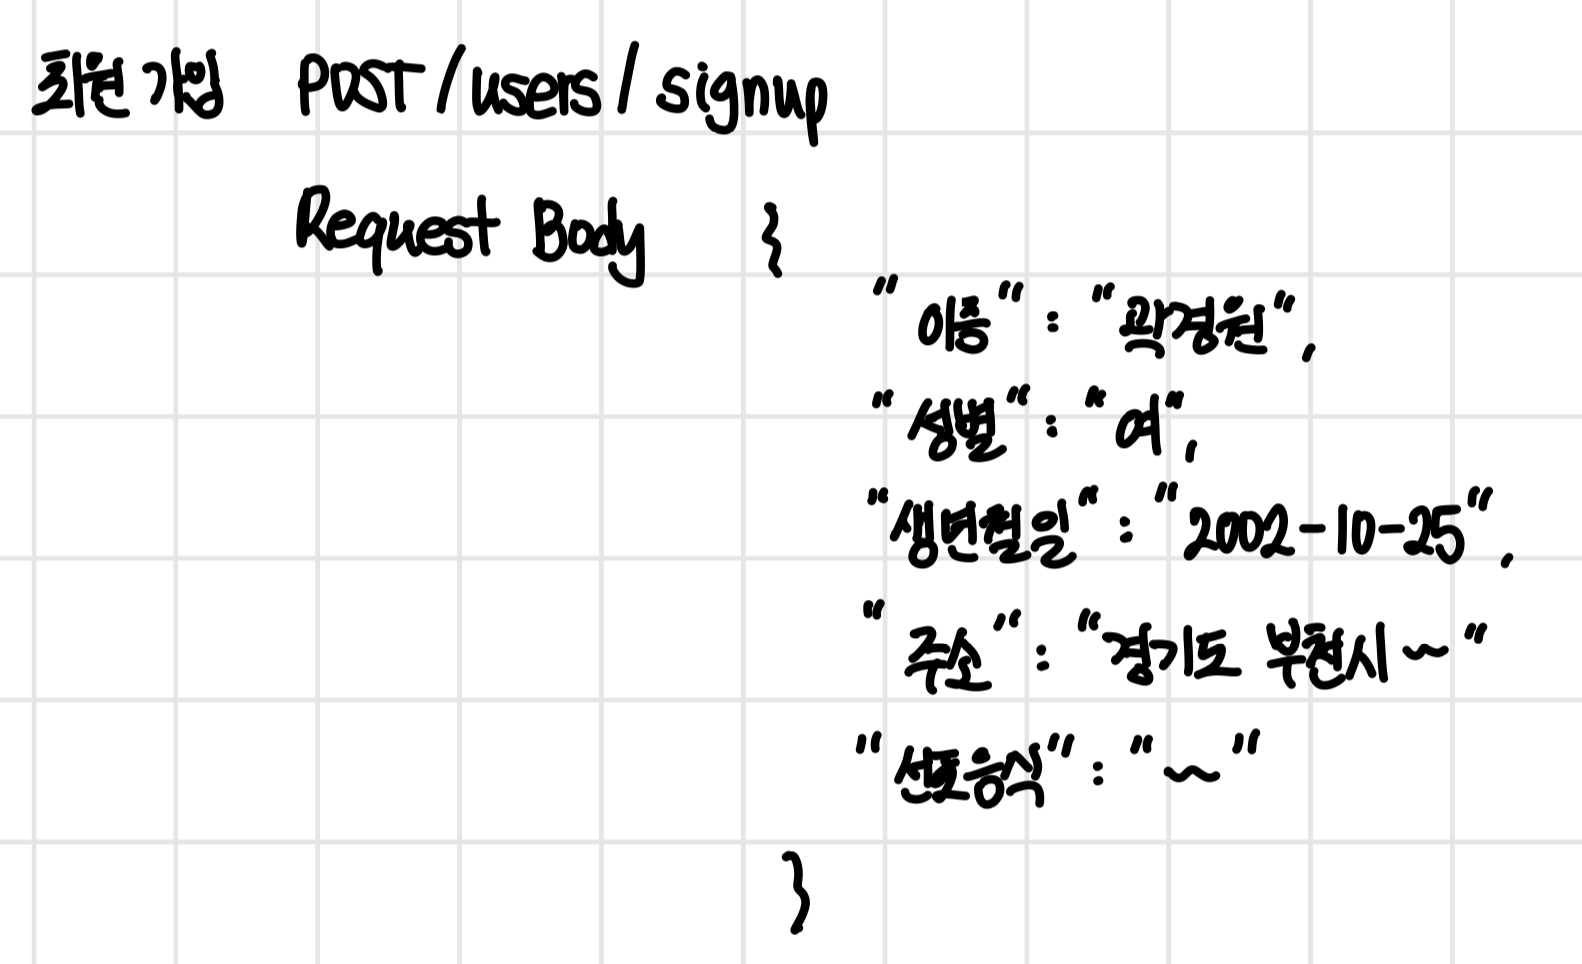 회원 가입 POST /users/signup
Request Body {
"이름" : "곽경원",
"성별" : "여",
"생년월일" : "2002-10-25",
"주소" : "경기도 부천시 ~"
"선호음식" : "~"
}